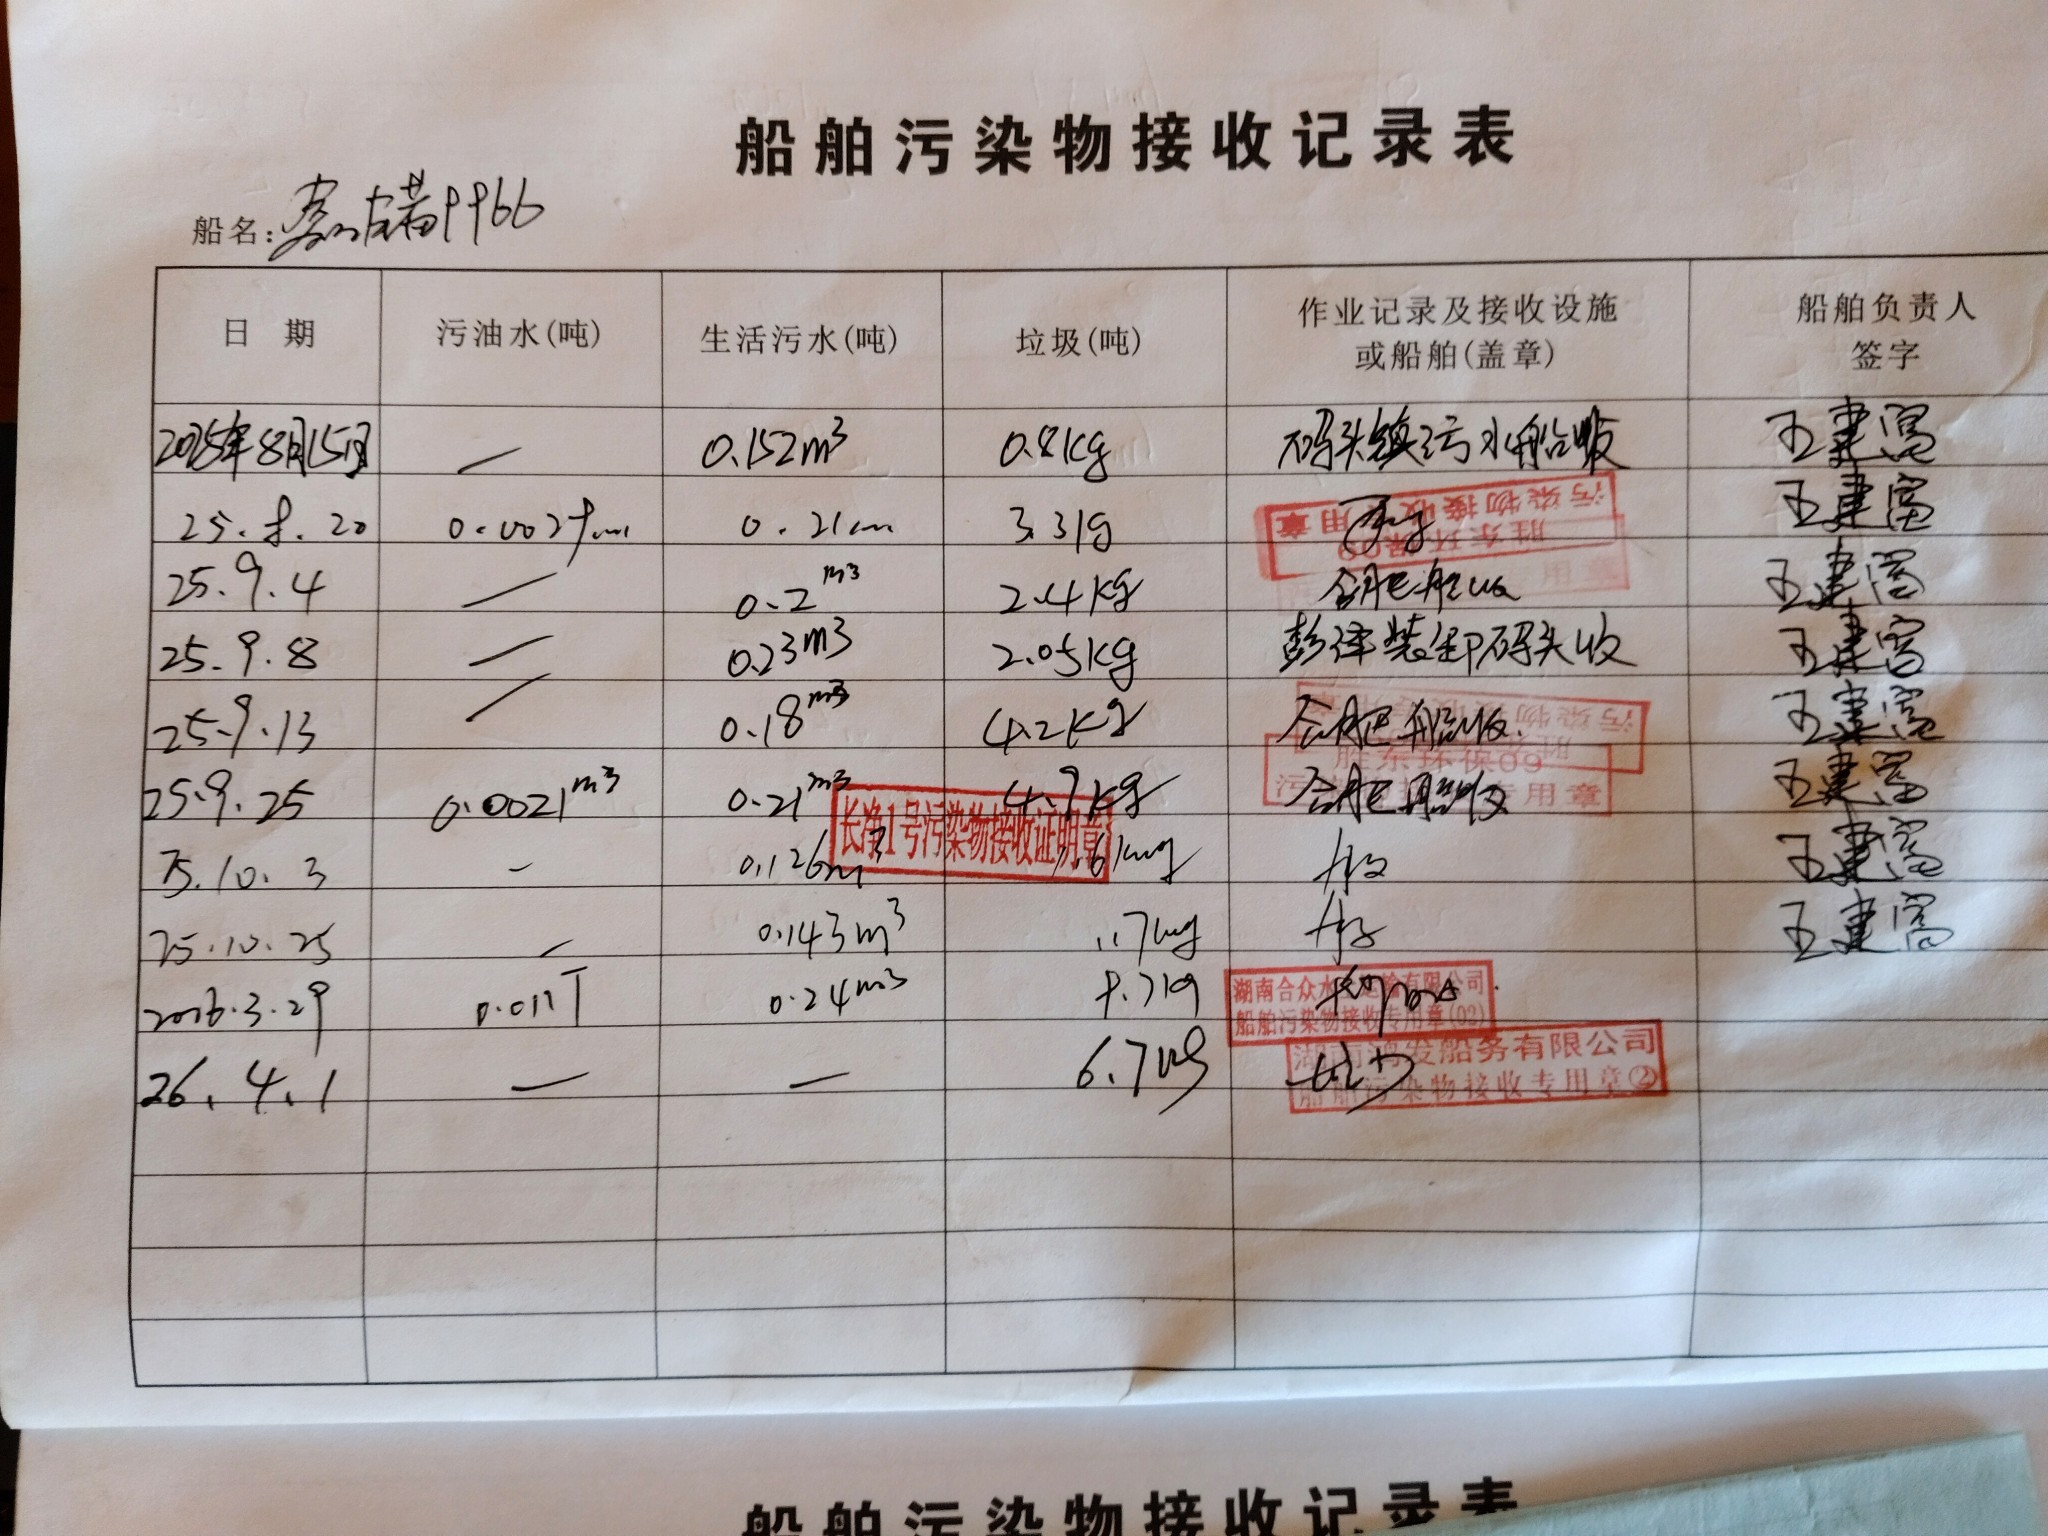 船舶污染物接收记录表
船名: 9966
日 期 污油水(吨) 生活污水(吨) 垃圾(吨) 作业记录及接收设施或船舶(盖章) 船舶负责人签字
2025年8月15日 — 0.152m³ 0.8kg 码头镇污水船收 王建富
25.8.20 0.21 3.31g 王建富
污染物接收专用章
胜东环保09
25.9.4 — 0.2m³ 2.4kg 合肥船收 王建富
25.9.8 — 0.23m³ 2.05kg 彭泽装卸码头收 王建富
25.9.13 — 0.18m³ 4.2kg 合肥船收. 王建富
胜东环保09
污染物接收专用章
25.9.25 0.0021m³ 0.21m³ 4.9kg 合肥船收 王建富
长净1号污染物接收证明章
25.10.3 - 0.126m³ 王建富
25.10.25 - 0.143m³ 1.7kg 王建富
2026.3.29 0.011T 0.24m³
湖南合众水运输有限公司
船舶污染物接收专用章(02)
26.4.1 — — 6.7kg
湖南鸿发船务有限公司
船舶污染物接收专用章②
船舶污染物接收记录表